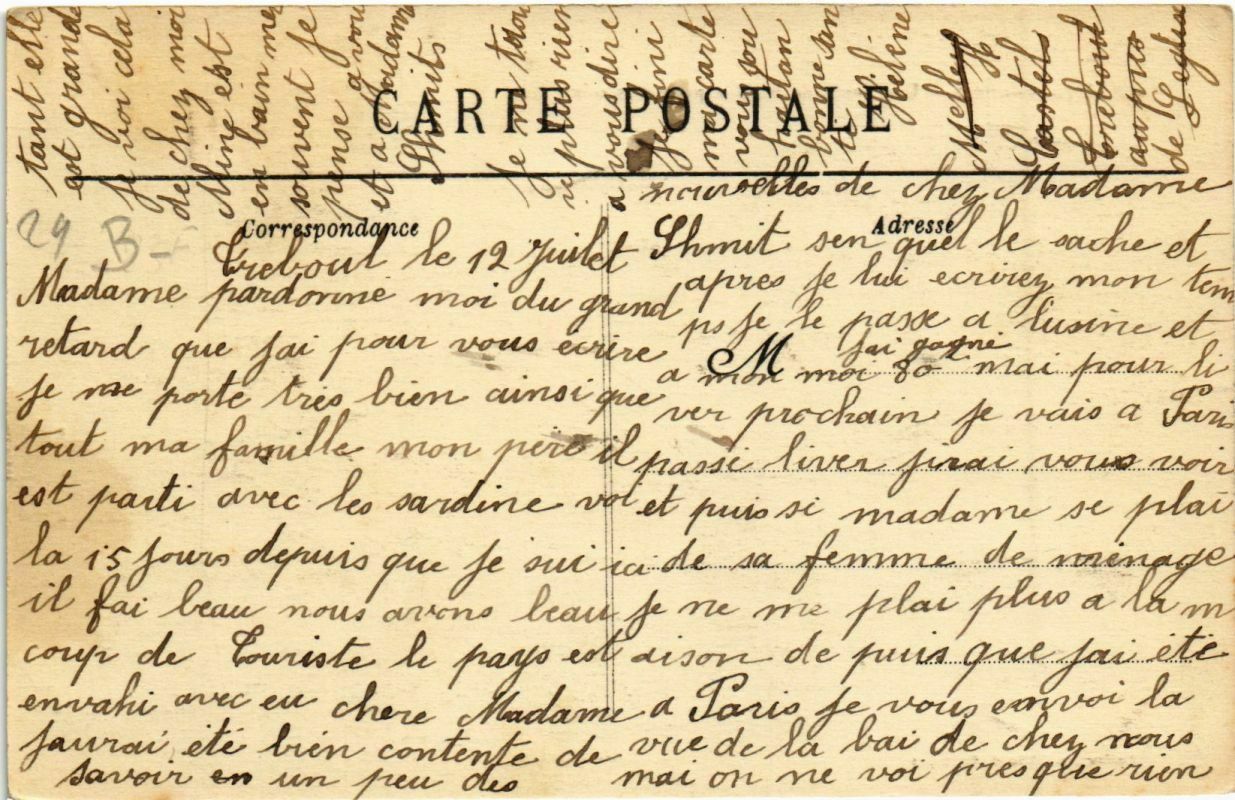 CARTE POSTALE
Correspondance
Adresse
29 B-
Treboul le 12 Juillet
Madame pardonne moi du grand
retard que jai pour vous ecrire
je me porte tres bien ainsi que
tout ma famille mon père il
est parti avec les sardine voi
la 15 jours depuis que je sui ici
il fai beau nous avons beau
coup de Touriste le pays est
envahi avec eu chere Madame
jaurai été bien contente de
savoir en un peu des
nouvelles de chez Madame
Shmit sen quel le sache et
apres je lui ecrirez mon tem
ps je le passe a lusine et
M
jai gagné
a mon moi 80 mai pour li
ver prochain je vais a Paris
passé liver jirai vous voir
et puis si madame se plai
de sa femme de ménage
je ne me plai plus a la m
aison de puis que jai été
a Paris je vous envoi la
vue de la bai de chez nous
mai on ne voi presque rien
tant elle
est grande
je voi cela
de chez moi
Mine est
en bain mer
souvent je
pense a vou
et a Madame
Shmits
je ne trou
ve puis rien
a vous dire
je fini
ma carte
vous sou
haitan
bonne san
té
Melley
auprès
de l'eglise